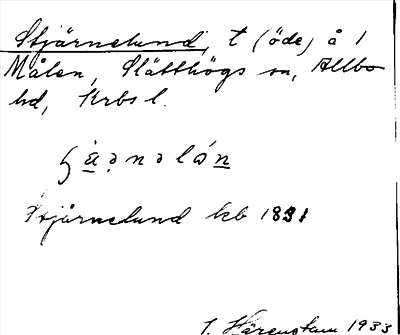 Stjärnelund, t (öde) å 1
Målen, Slätthögs sn, Allbo
hd, Krbs l.
ʂä̀ənəlón
Stjärnelund kb 1881
I. Härenstam 1933